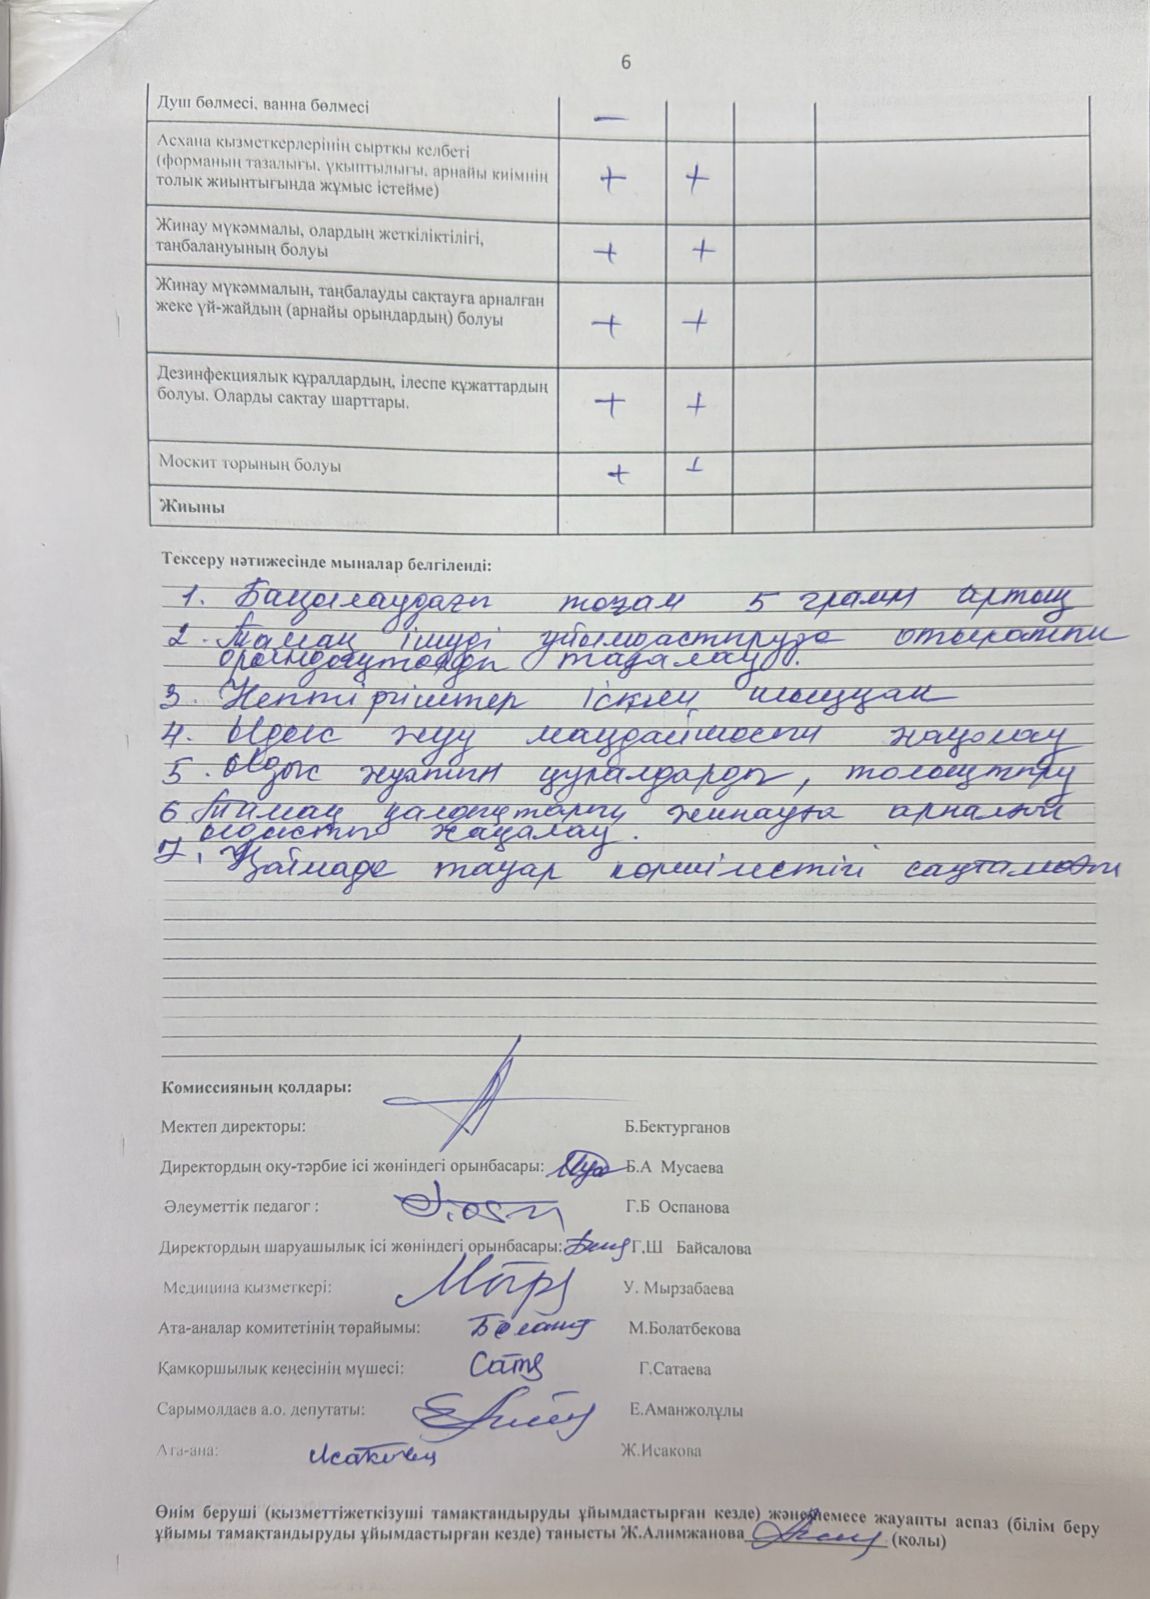 6
Душ бөлмесі, ванна бөлмесі —
Асхана қызметкерлерінің сыртқы келбеті
(форманың тазалығы, ұқыптылығы, арнайы киімнің
толық жиынтығында жұмыс істейме) + +
Жинау мүкәммалы, олардың жеткіліктілігі,
таңбалануының болуы + +
Жинау мүкәммалын, таңбалауды сақтауға арналған
жеке үй-жайдың (арнайы орындардың) болуы + +
Дезинфекциялық құралдардың, ілеспе құжаттардың
болуы. Оларды сақтау шарттары. + +
Москит торының болуы + +
Жиыны
Тексеру нәтижесінде мыналар белгіленді:
1. Бақылаудағы тоғам 5 грамм артық
2. Тамақ ішуді ұйымдастыруға отыратын
орындықтарды тазалау.
3. Кептіргіштер істен шыққан
4. Ыдыс жуу маңдайшасын жаңалау
5. Ыдыс жуатын құралдарды, толықтыру
6 Тамақ қалдықтарын жинауға арналған
ыдысты жаңалау.
7. Қоймада тауар көршілестігі сақталмаған
Комиссияның қолдары:
Мектеп директоры: Б.Бектурганов
Директордың оқу-тәрбие ісі жөніндегі орынбасары: Б.А Мусаева
Әлеуметтік педагог : Г.Б Оспанова
Директордың шаруашылық ісі жөніндегі орынбасары: Г.Ш Байсалова
Медицина қызметкері: У. Мырзабаева
Ата-аналар комитетінің төрайымы: М.Болатбекова
Қамқоршылық кеңесінің мүшесі: Г.Сатаева
Сарымолдаев а.о. депутаты: Е.Аманжолұлы
Ата-ана: Ж.Исакова
Өнім беруші (қызметтіжеткізуші тамақтандыруды ұйымдастырған кезде) және немесе жауапты аспаз (білім беру
ұйымы тамақтандыруды ұйымдастырған кезде) танысты Ж.Алимжанова (қолы)